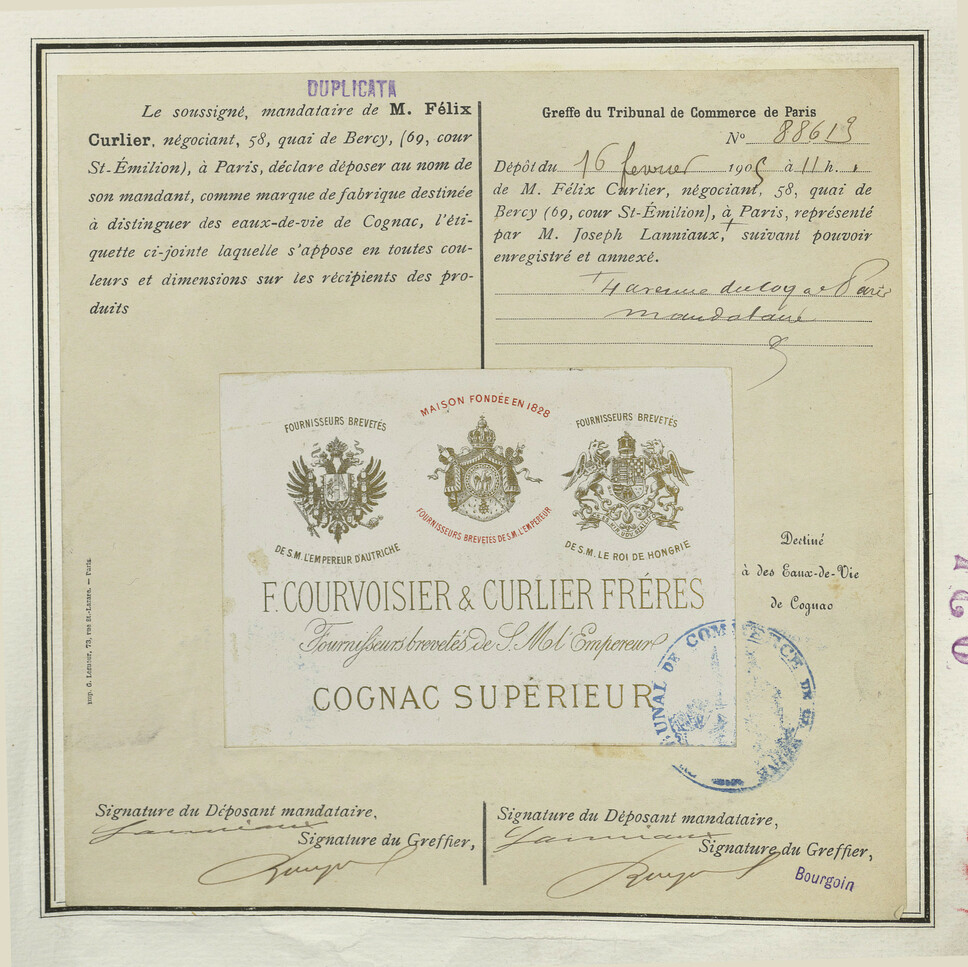 DUPLICATA
Le soussigné, mandataire de M. Félix
Curlier, négociant, 58, quai de Bercy, (69, cour
St-Émilion), à Paris, déclare déposer au nom de
son mandant, comme marque de fabrique destinée
à distinguer des eaux-de-vie de Cognac, l'éti-
quette ci-jointe laquelle s'appose en toutes cou-
leurs et dimensions sur les récipients des pro-
duits
Greffe du Tribunal de Commerce de Paris
N° 88613
Dépôt du 16 fevrier 1905 à 11 h.
de M. Félix Curlier, négociant, 58, quai de
Bercy (69, cour St-Émilion), à Paris, représenté
par M. Joseph Lanniaux, + suivant pouvoir
enregistré et annexé.
+ 4 avenue du Coq a Paris
mandataire
FOURNISSEURS BREVETÉS
DE S.M. L'EMPEREUR D'AUTRICHE
MAISON FONDÉE EN 1828
FOURNISSEURS BREVETÉS DE S.M. L'EMPEREUR
FOURNISSEURS BREVETÉS
DE S.M. LE ROI DE HONGRIE
F. COURVOISIER & CURLIER FRÉRES
Fournisseurs brevetés de S. M l'Empereur
COGNAC SUPÉRIEUR
Destiné
à des Eaux-de-Vie
de Cognac
TRIBUNAL DE COMMERCE DE LA SEINE
Signature du Déposant mandataire,
Lanniaux
Signature du Greffier,
Signature du Déposant mandataire,
Lanniaux
Signature du Greffier,
Bourgoin